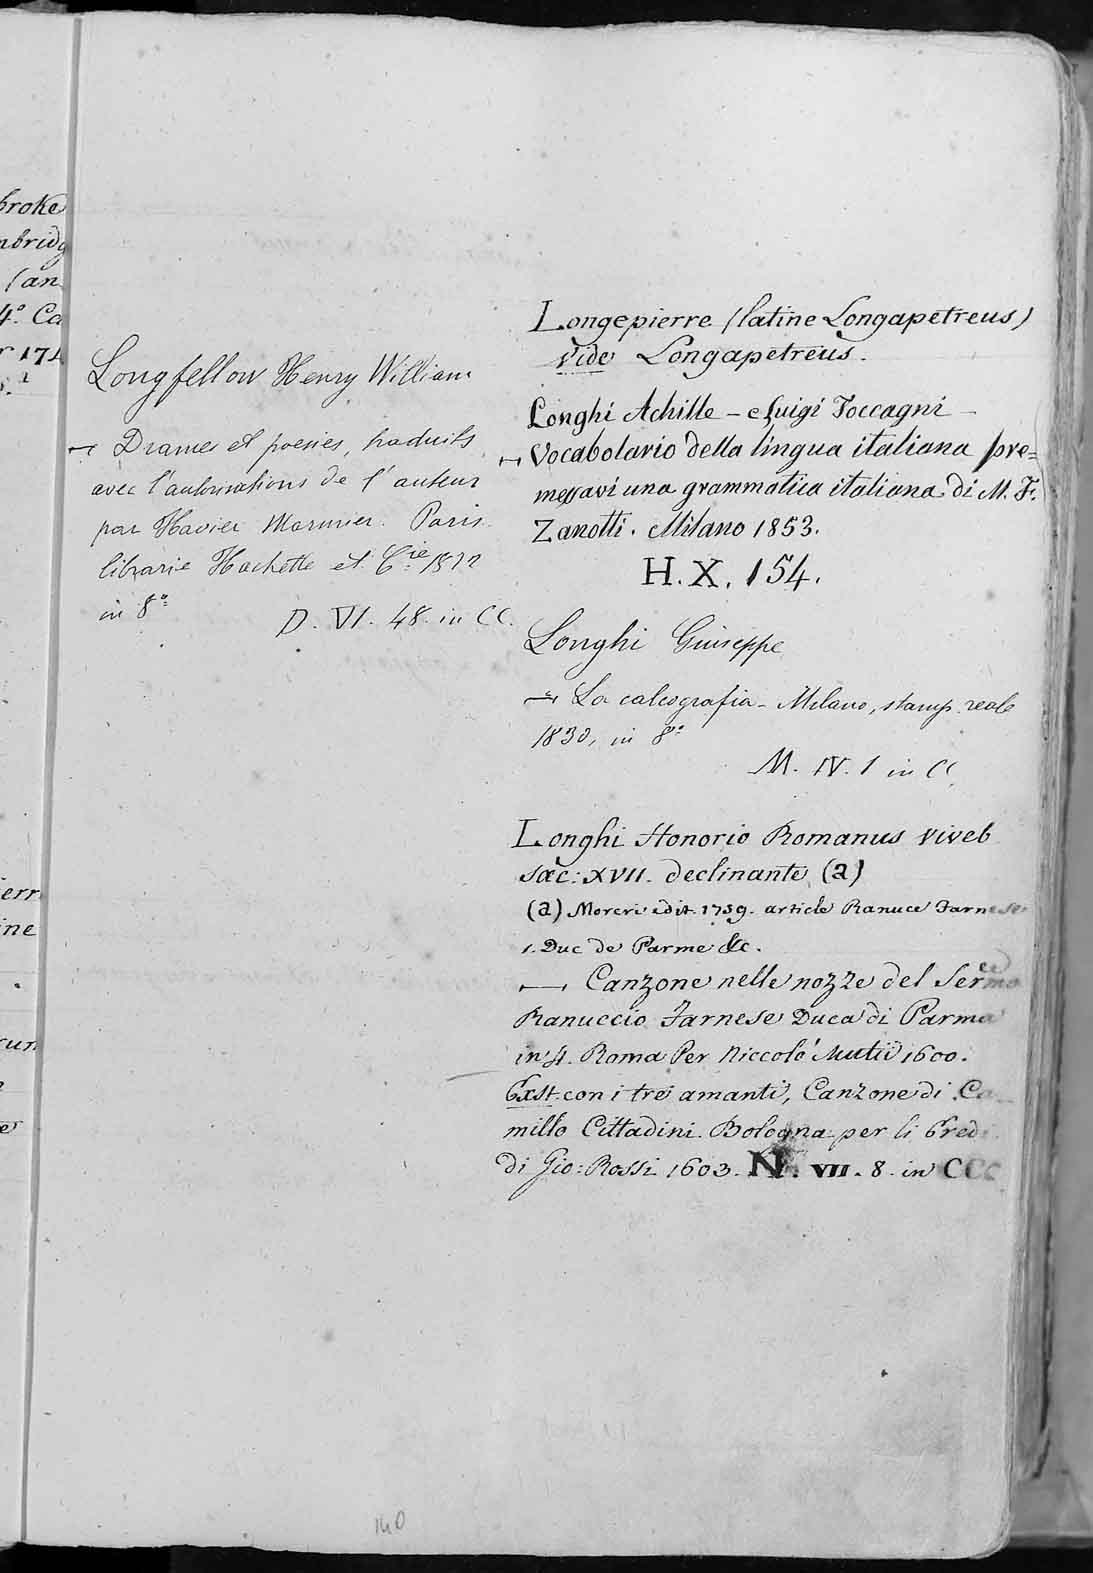 broke
mbridg
(an
4.º Ca
r 174
Longfellow Henry William
— Drames et poesies, traduits
avec l'autorisations de l'auteur
par Xavier Marmier. Paris
librarie Hachette et C.ie 1872
in 8º
D. VI. 48. in CC.
erri
ine
Longepierre (latine Longapetreus)
vide Longapetreus.
Longhi Achille – e Luigi Toccagni –
Vocabolario della lingua italiana pre=
messavi una grammatica italiana di M. F.
Zanotti. Milano 1853.
H. X. 154.
Longhi Giuseppe
— La calcografia – Milano, stamp. reale
1830, in 8º
M. IV. 1 in CC.
Longhi Honorio Romanus viveb
sæc: XVII. declinante (a)
(a) Moreri edit. 1759. article Ranuce Farnese
1. Duc de Parme &c.
— Canzone nelle nozze del Sermo
Ranuccio Farnese Duca di Parma
in 4. Roma Per Niccolò Mutii 1600.
Exst. con i tre amanti, Canzone di Ca
millo Cittadini. Bologna per li Eredi
di Gio: Rossi 1603. N. VII. 8. in CCC
140